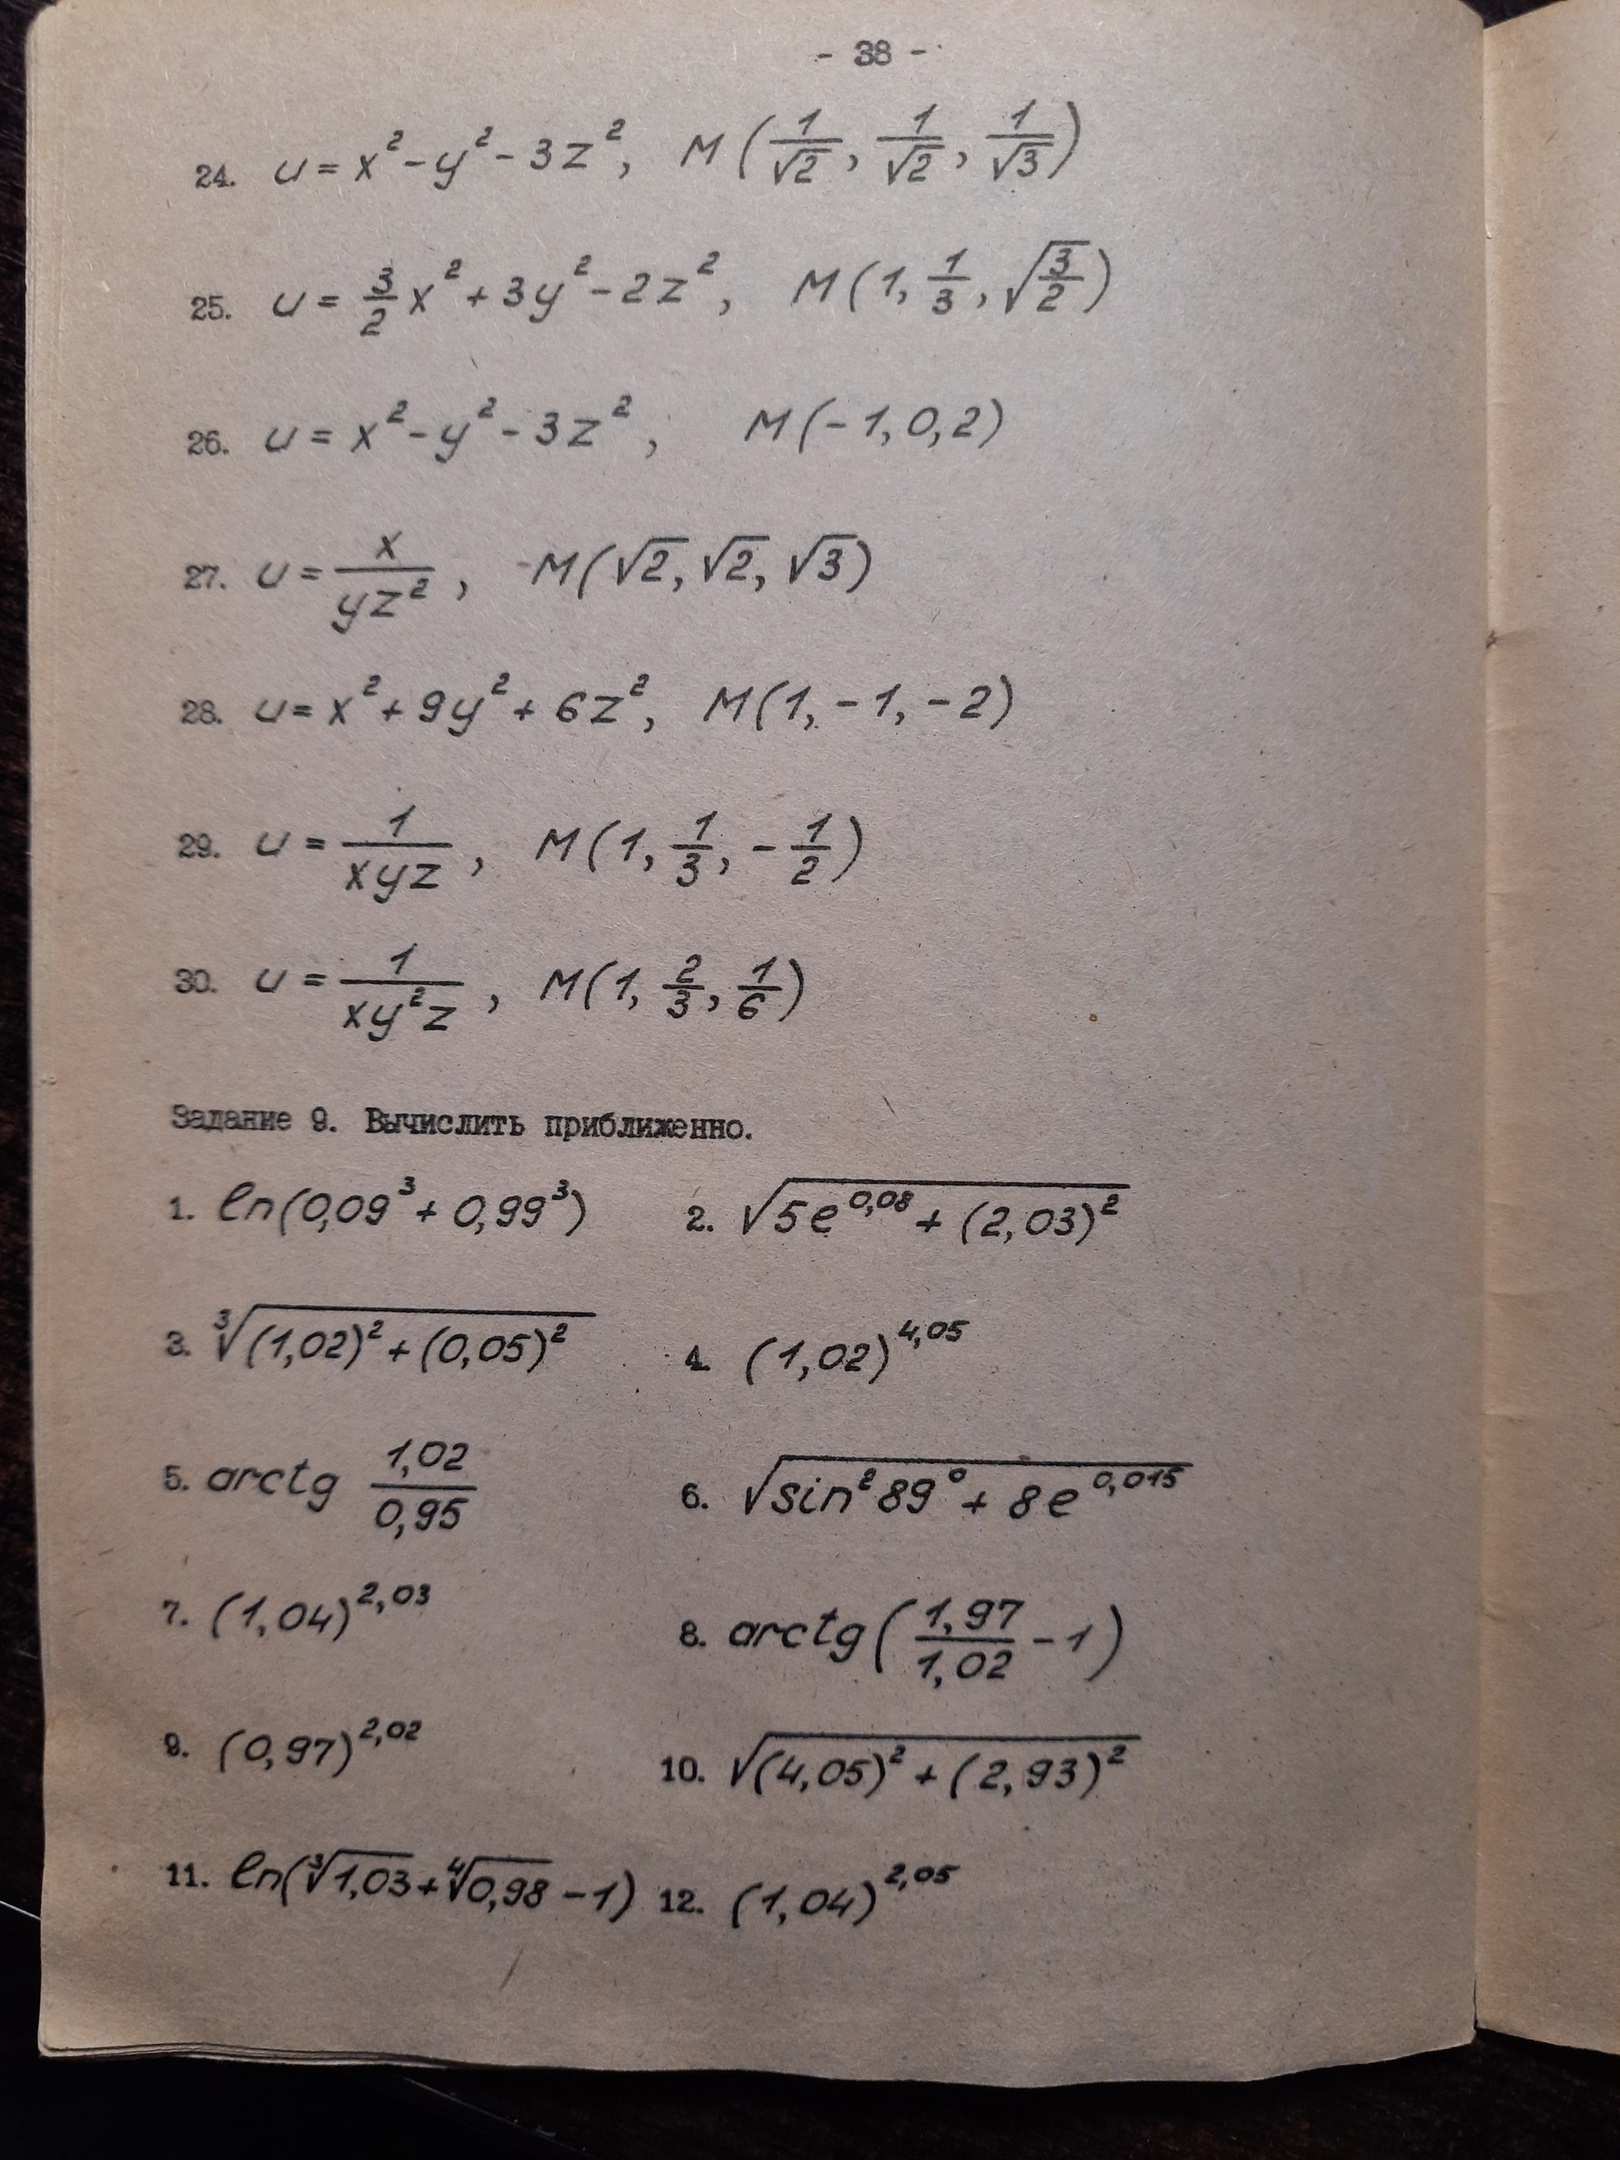 - 38 -
24. u = x² - y² - 3z², M(1/√2, 1/√2, 1/√3)
25. u = 3/2 x² + 3y² - 2z², M(1, 1/3, √(3/2))
26. u = x² - y² - 3z², M(-1, 0, 2)
27. u = x/(yz²), M(√2, √2, √3)
28. u = x² + 9y² + 6z², M(1, -1, -2)
29. u = 1/(xyz), M(1, 1/3, -1/2)
30. u = 1/(xy²z), M(1, 2/3, 1/6)
Задание 9. Вычислить приближенно.
1. ln(0,09³ + 0,99³) 2. √(5e^0,08 + (2,03)²)
3. ∛((1,02)² + (0,05)²) 4. (1,02)^4,05
5. arctg 1,02/0,95 6. √(sin²89° + 8e^0,015)
7. (1,04)^2,03 8. arctg(1,97/1,02 - 1)
9. (0,97)^2,02 10. √((4,05)² + (2,93)²)
11. ln(∛1,03 + ∜0,98 - 1) 12. (1,04)^2,05